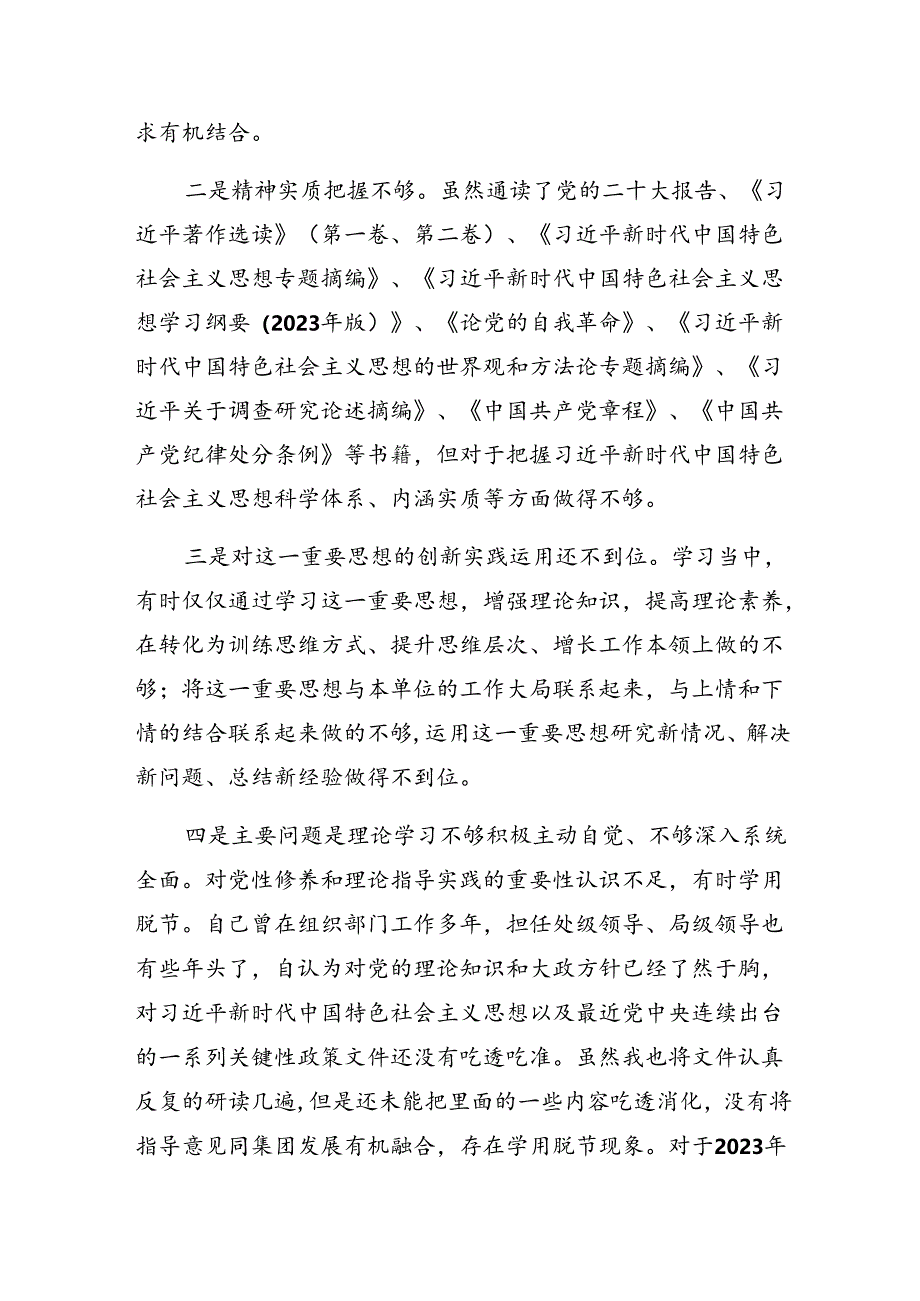 求有机结合。
二是精神实质把握不够。虽然通读了党的二十大报告、《习
近平著作选读》（第一卷、第二卷）、《习近平新时代中国特色
社会主义思想专题摘编》、《习近平新时代中国特色社会主义思
想学习纲要（2023年版）》、《论党的自我革命》、《习近平新
时代中国特色社会主义思想的世界观和方法论专题摘编》、《习
近平关于调查研究论述摘编》、《中国共产党章程》、《中国共
产党纪律处分条例》等书籍，但对于把握习近平新时代中国特色
社会主义思想科学体系、内涵实质等方面做得不够。
三是对这一重要思想的创新实践运用还不到位。学习当中，
有时仅仅通过学习这一重要思想，增强理论知识，提高理论素养，
在转化为训练思维方式、提升思维层次、增长工作本领上做的不
够；将这一重要思想与本单位的工作大局联系起来，与上情和下
情的结合联系起来做的不够,运用这一重要思想研究新情况、解决
新问题、总结新经验做得不到位。
四是主要问题是理论学习不够积极主动自觉、不够深入系统
全面。对党性修养和理论指导实践的重要性认识不足，有时学用
脱节。自己曾在组织部门工作多年，担任处级领导、局级领导也
有些年头了，自认为对党的理论知识和大政方针已经了然于胸，
对习近平新时代中国特色社会主义思想以及最近党中央连续出台
的一系列关键性政策文件还没有吃透吃准。虽然我也将文件认真
反复的研读几遍,但是还未能把里面的一些内容吃透消化，没有将
指导意见同集团发展有机融合，存在学用脱节现象。对于2023年